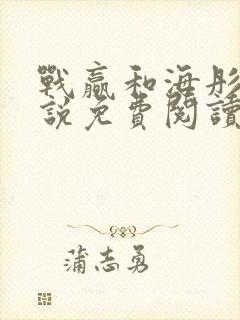 戰贏和海彤
說免費閱讀
蒲志勇